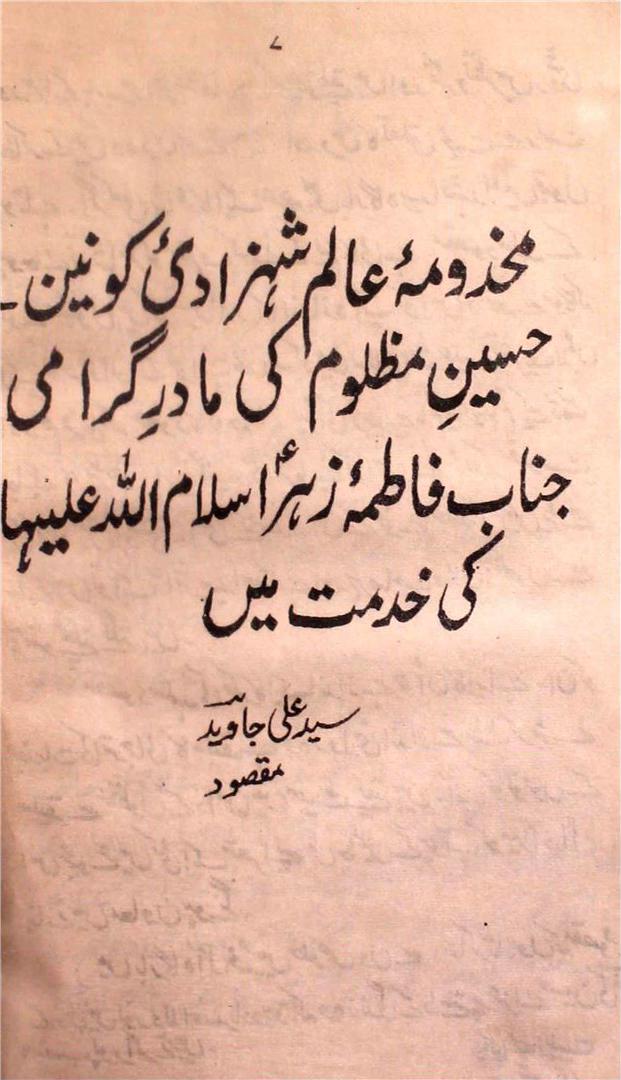 ۷
مخذومۂ عالم شہزادیٔ کونین ـ
حسینِ مظلوم کی مادرِ گرامی
جناب فاطمۂ زہراؑ سلام اللہ علیہا
کی خدمت میں
سید علی جاوید
مقصود